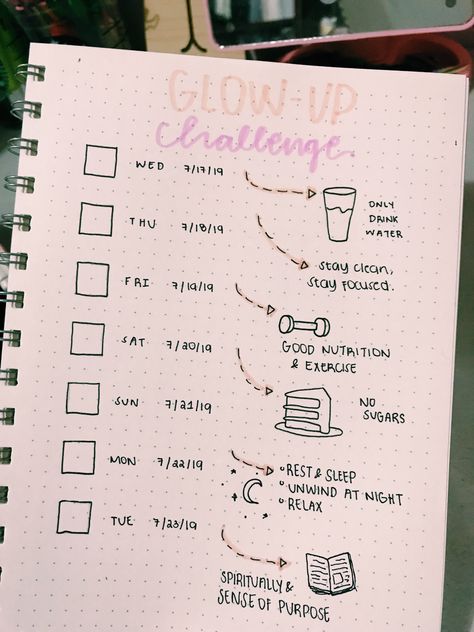 GLOW-UP
Challenge.
WED 7/17/19
ONLY
DRINK
WATER
THU 7/18/19
stay clean,
stay focused.
FRI 7/19/19
GOOD NUTRITION
& EXERCISE
SAT 7/20/19
NO
SUGARS
SUN 7/21/19
MON 7/22/19
REST & SLEEP
UNWIND AT NIGHT
RELAX
TUE 7/23/19
SPIRITUALLY &
SENSE OF PURPOSE